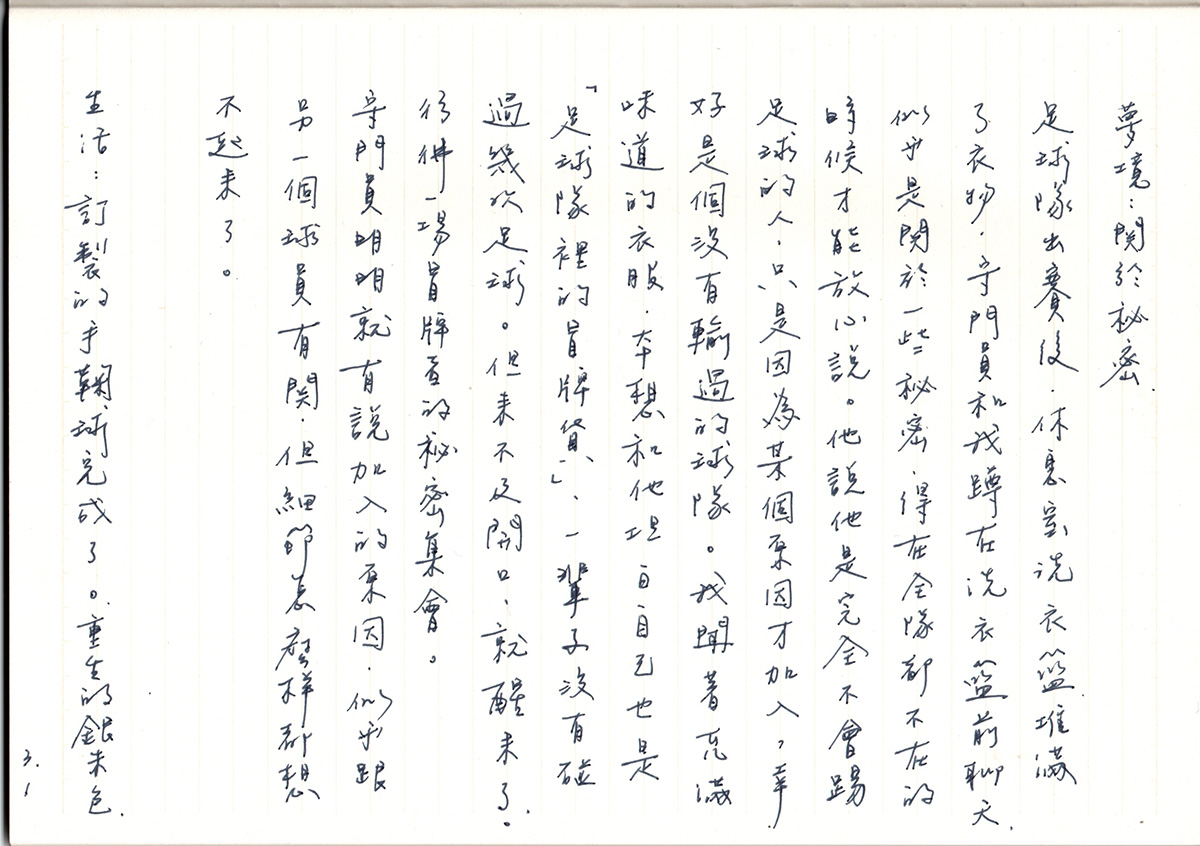 夢境：関於秘密.
足球隊出賽後．休息室洗衣籃堆滿
了衣物．守門員和我蹲在洗衣籃前聊天．
似乎是関於一些秘密．得在全隊都不在的
時候才能放心說。他說他是完全不會踢
足球的人，只是因為某個原因才加入，幸
好是個沒有輸過的球隊。我聞著充滿
味道的衣服．本想和他坦白自己也是
「足球隊裡的冒牌貨」、一輩子沒有碰
過幾次足球。但来不及開口，就醒来了．
彷彿一場冒牌者的秘密集會。
守門員明明就有說加入的原因．似乎跟
另一個球員有関．但細節怎麼樣都想
不起来了。
生活：訂製的手鞠球完成了。重生的銀朱色．
3.1